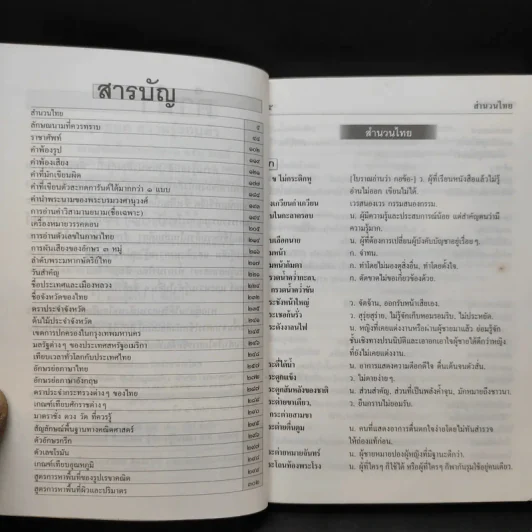 สารบัญ
สำนวนไทย
ลักษณนามที่ควรทราบ ๕
ราชาศัพท์
คำพ้องรูป ๑๐๒
คำพ้องเสียง
คำที่มักเขียนผิด
คำที่เขียนตัวสะกดการันต์ได้มากกว่า ๑ แบบ
คำนำพระนามของพระบรมวงศานุวงศ์
การอ่านคำวิสามานยนาม(ชื่อเฉพาะ)
เครื่องหมายวรรคตอน
การอ่านตัวเลขในภาษาไทย
การผันเสียงของอักษร ๓ หมู่
ลำดับพระมหากษัตริย์ไทย
วันสำคัญ
ชื่อประเทศและเมืองหลวง
ชื่อจังหวัดของไทย
ตราประจำจังหวัด
ต้นไม้ประจำจังหวัด
เขตการปกครองในกรุงเทพมหานคร
มลรัฐต่างๆ ของประเทศสหรัฐอเมริกา
เทียบเวลาทั่วโลกกับประเทศไทย
อักษรย่อภาษาไทย
อักษรย่อภาษาอังกฤษ
ตราประจำกระทรวงต่างๆ ของไทย
เกณฑ์เทียบศักราชต่างๆ
มาตราชั่ง ตวง วัด ที่ควรรู้
สัญลักษณ์พื้นฐานทางคณิตศาสตร์
ตัวอักษรกรีก
ตัวเลขโรมัน
เกณฑ์เทียบอุณหภูมิ
สูตรการหาพื้นที่ของรูปเรขาคณิต
สูตรการหาพื้นที่ผิวและปริมาตร
สำนวนไทย
สำนวนไทย
ก
ข ไม่กระดิกหู [โบราณอ่านว่า กอข้อ-] ว. ผู้ที่เรียนหนังสือแล้วไม่รู้
อ่านไม่ออก เขียนไม่ได้.
งเกวียนกำเกวียน เวรสนองเวร กรรมสนองกรรม.
ในกะลาครอบ น. ผู้มีความรู้และประสบการณ์น้อย แต่สำคัญตนว่ามี
ความรู้มาก.
บเลือกนาย น. ผู้ที่ต้องการเปลี่ยนผู้บังคับบัญชาอยู่เรื่อยๆ.
มหน้า ก. จำทน.
มหน้าก้มตา ก. ทำโดยไม่มองดูสิ่งอื่น, ทำโดยตั้งใจ.
รวดน้ำคว่ำกะลา, ก. ตัดขาดไม่ขอเกี่ยวข้องด้วย.
กรวดน้ำคว่ำขัน
ระชังหน้าใหญ่ ว. จัดจ้าน, ออกรับหน้าเสียเอง.
ระเชอก้นรั่ว ว. สุรุ่ยสุร่าย, ไม่รู้จักเก็บหอมรอมริบ, ไม่ประหยัด.
ระดังงาลนไฟ น. หญิงที่เคยแต่งงานหรือผ่านผู้ชายมาแล้ว ย่อมรู้จัก
ชั้นเชิงทางปรนนิบัติและเอาอกเอาใจผู้ชายได้ดีกว่าหญิง
ที่ยังไม่เคยแต่งงาน.
ระดี่ได้น้ำ น. อาการแสดงความดีอกดีใจ ตื่นเต้นจนตัวสั่น.
ระดูกแข็ง ว. ไม่ตายง่ายๆ.
ระดูกสันหลังของชาติ น. ส่วนสำคัญ, ส่วนที่เป็นพลังค้ำจุน, มักหมายถึงชาวนา.
ระต่ายขาเดียว, ว. ยืนกรานไม่ยอมรับ.
กระต่ายสามขา
ระต่ายตื่นตูม น. คนที่แสดงอาการตื่นตกใจง่ายโดยไม่ทันสำรวจ
ให้ถ่องแท้ก่อน.
ระต่ายหมายจันทร์ น. ผู้ชายหมายปองผู้หญิงที่มีฐานะดีกว่า.
ระโถนท้องพระโรง น. ผู้ที่ใครๆ ก็ใช้ได้ หรือผู้ที่ใครๆ ก็พากันรุมใช้อยู่คนเดียว.